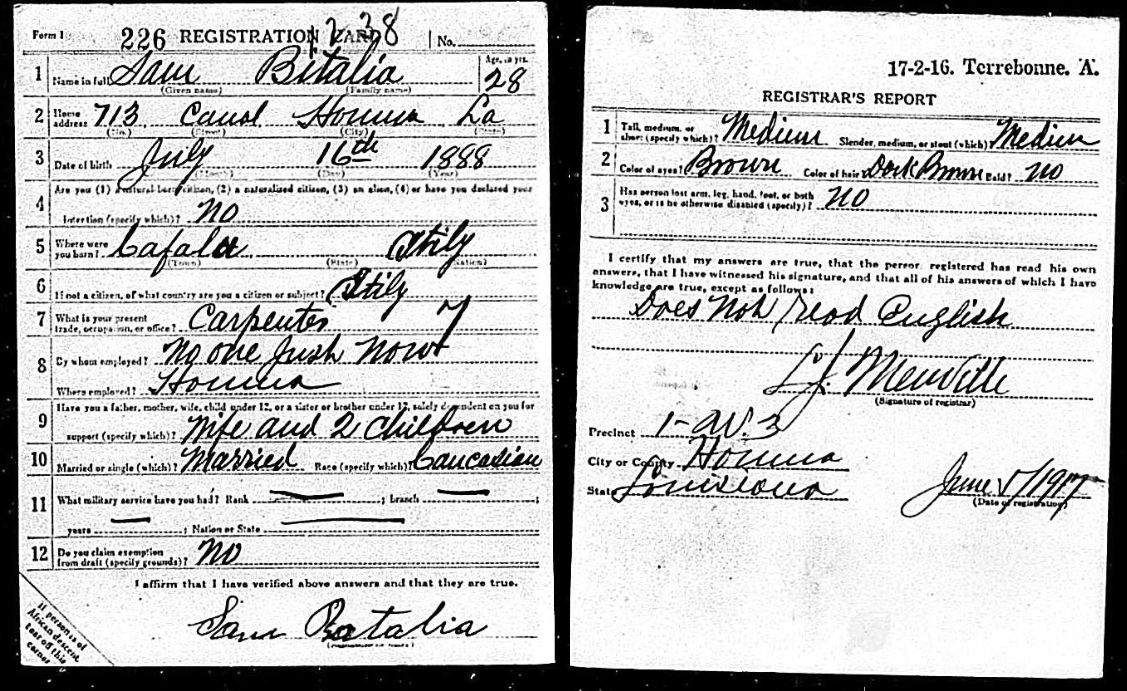 Form 1 226 REGISTRATION CARD 1238 No.
1 Name in full Sam Bitalia Age, in yrs. 28
(Given name) (Family name)
2 Home address 713 Canal Houma La
(No.) (Street) (City) (State)
3 Date of birth July 16th 1888
(Month) (Day) (Year)
4 Are you (1) a natural-born citizen, (2) a naturalized citizen, (3) an alien, (4) or have you declared your
intention (specify which)? No
5 Where were you born? Cafalu Itily
(Town) (State) (Nation)
6 If not a citizen, of what country are you a citizen or subject? Itily
7 What is your present trade, occupation, or office? Carpenter 7
8 By whom employed? No one Just Now
Where employed? Houma
9 Have you a father, mother, wife, child under 12, or a sister or brother under 12, solely dependent on you for
support (specify which)? Wife and 2 children
10 Married or single (which)? Married Race (specify which)? Caucasian
11 What military service have you had? Rank ; branch ;
years ; Nation or State
12 Do you claim exemption from draft (specify grounds)? No
I affirm that I have verified above answers and that they are true.
Sam Batalia
If person is of
African descent
tear off this
corner
17-2-16. Terrebonne. A.
REGISTRAR'S REPORT
1 Tall, medium, or short (specify which)? Medium Slender, medium, or stout (which)? Medium
2 Color of eyes? Brown Color of hair? Dark Brown Bald? No
3 Has person lost arm, leg, hand, foot, or both eyes, or is he otherwise disabled (specify)? No
I certify that my answers are true, that the person registered has read his own
answers, that I have witnessed his signature, and that all of his answers of which I have
knowledge are true, except as follows:
Does Not read English
L. J. Menville
(Signature of registrar)
Precinct 1 - W. 3
City or County Houma
State Louisiana June 5/1917
(Date of registration)